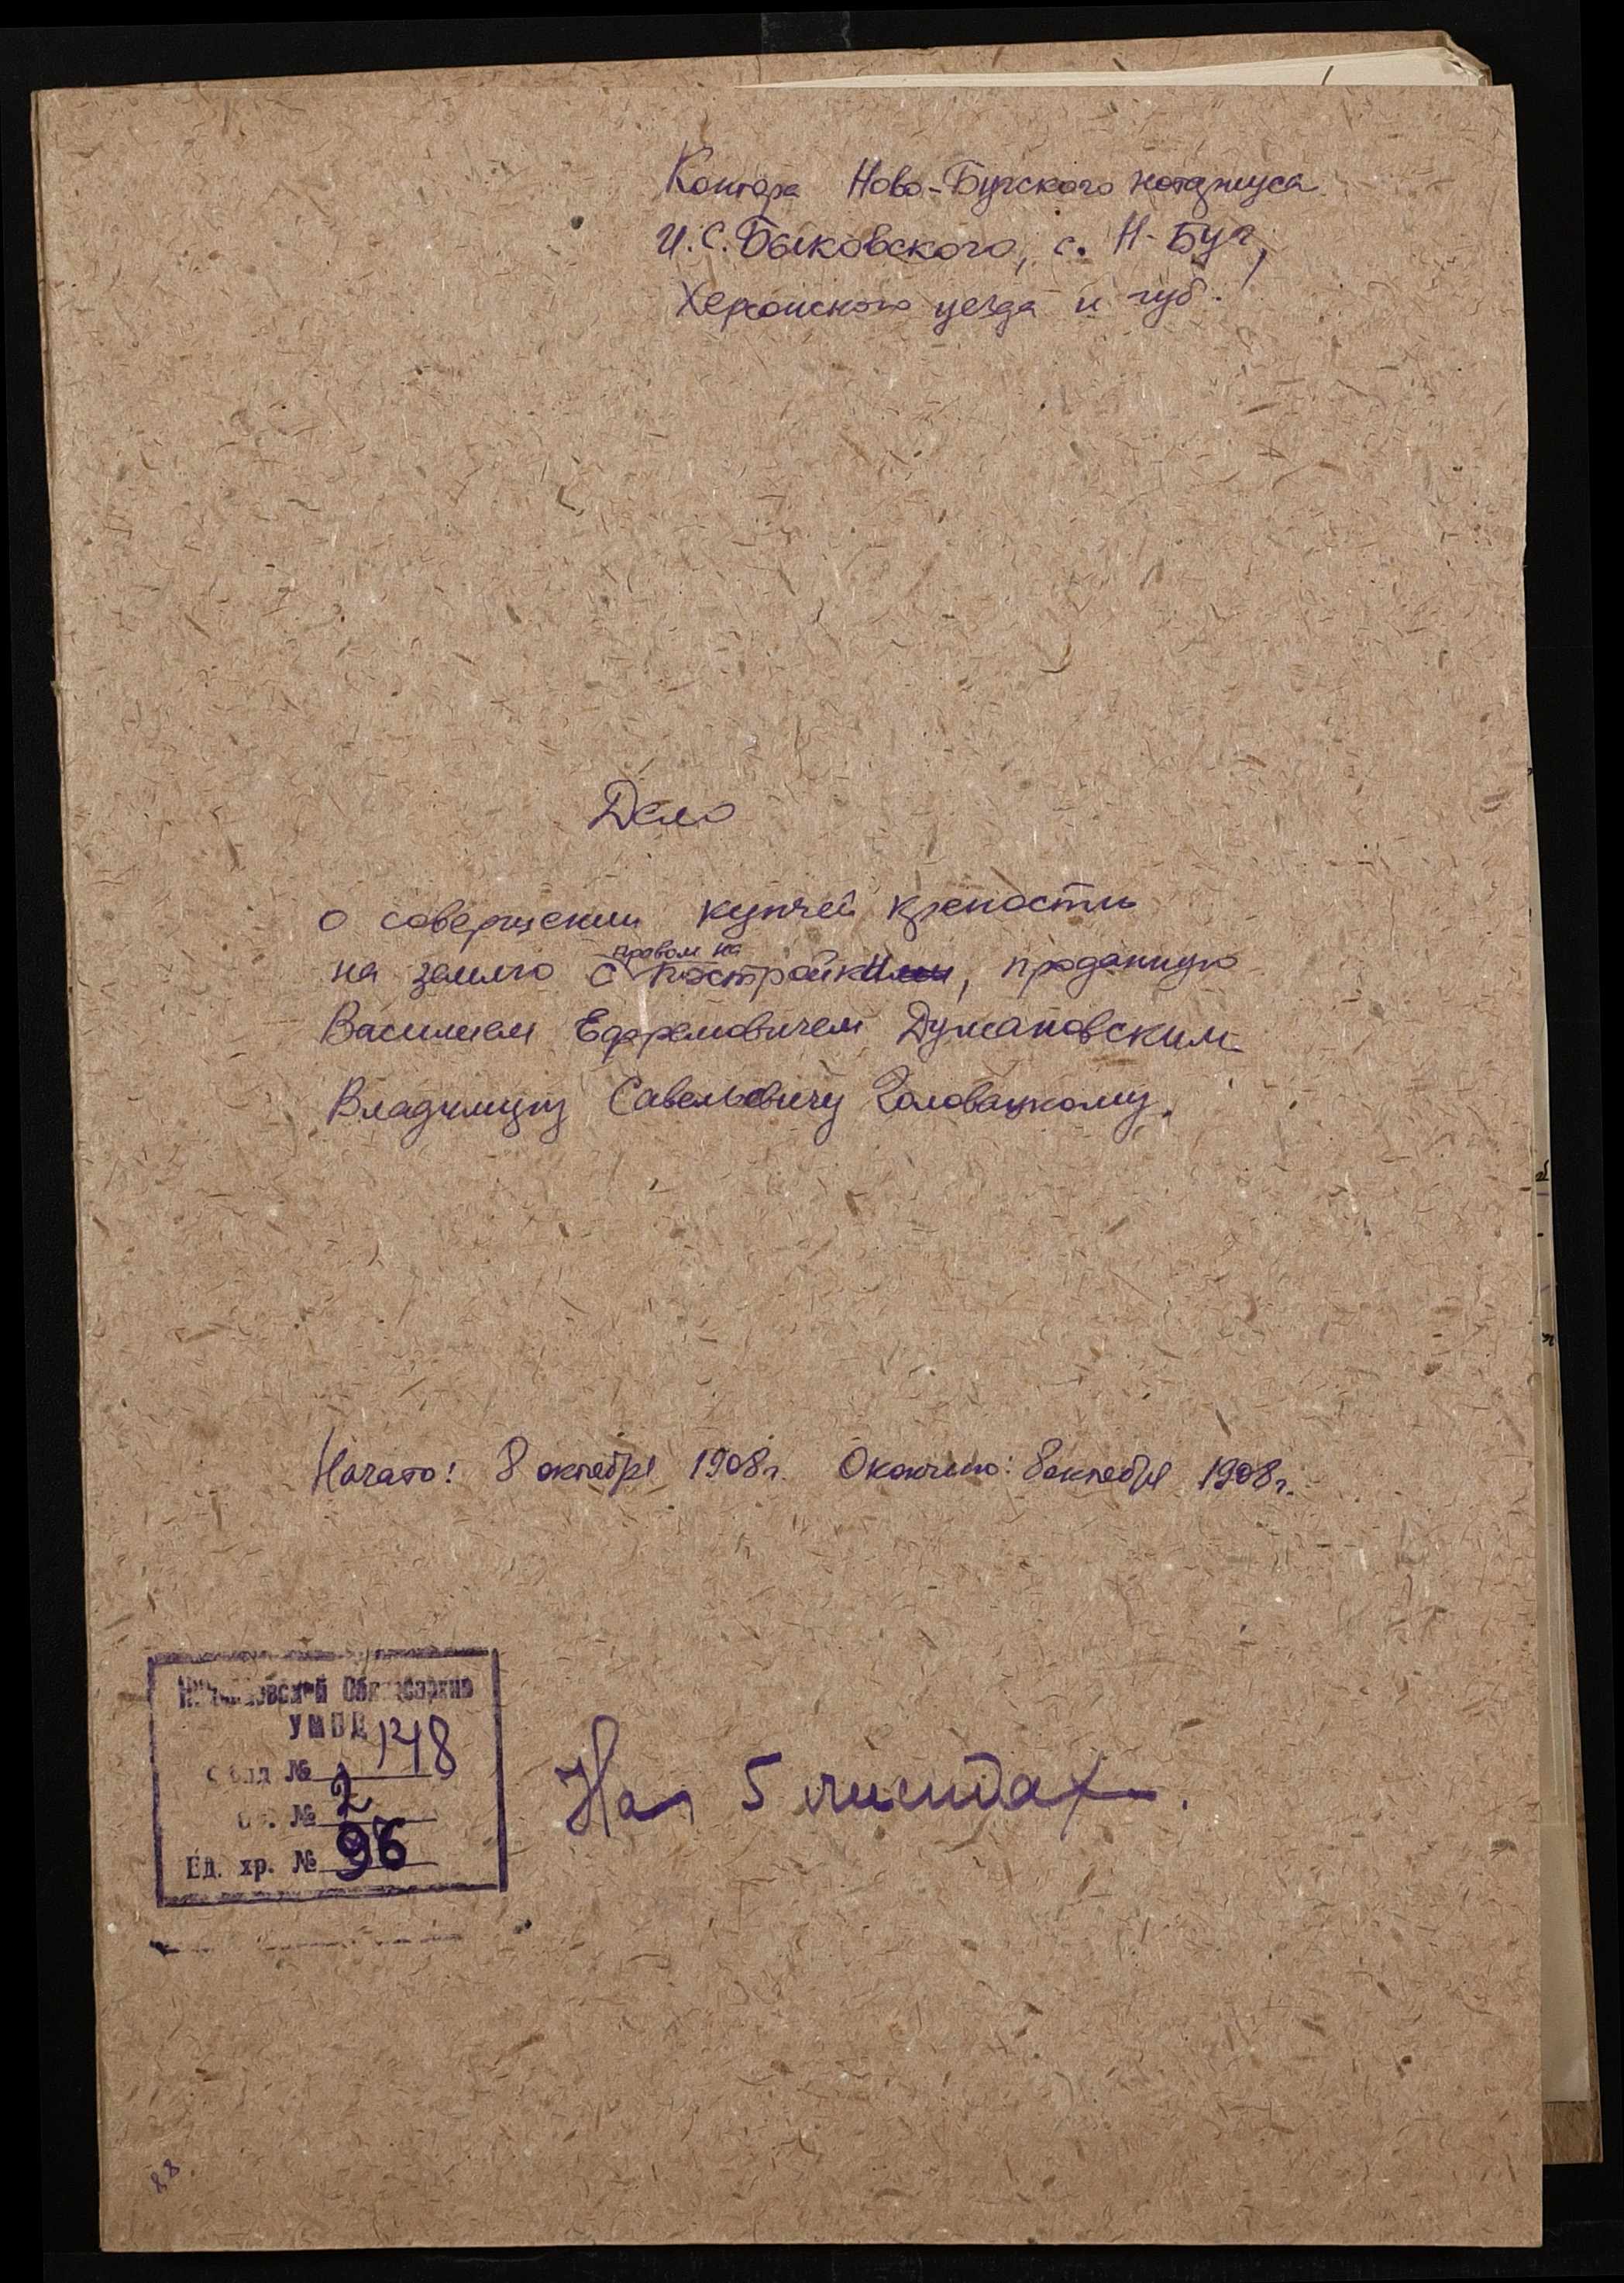 Контора Ново-Бугского нотариуса
И.С. Быковского, с. Н-Буг,
Херсонского уезда и губ.
Дело
о совершении купчей крепости
правом на
на землю с постройки, проданную
Василием Ефремовичем Думановским
Владимиру Савельевичу Головацкому.
Начато: 8 октября 1908 г. Окончено: 8 октября 1908 г.
Облгосархив
УМВД
Фонд № 148
Оп. № 2
Ед. хр. № 96
На 5 листах.